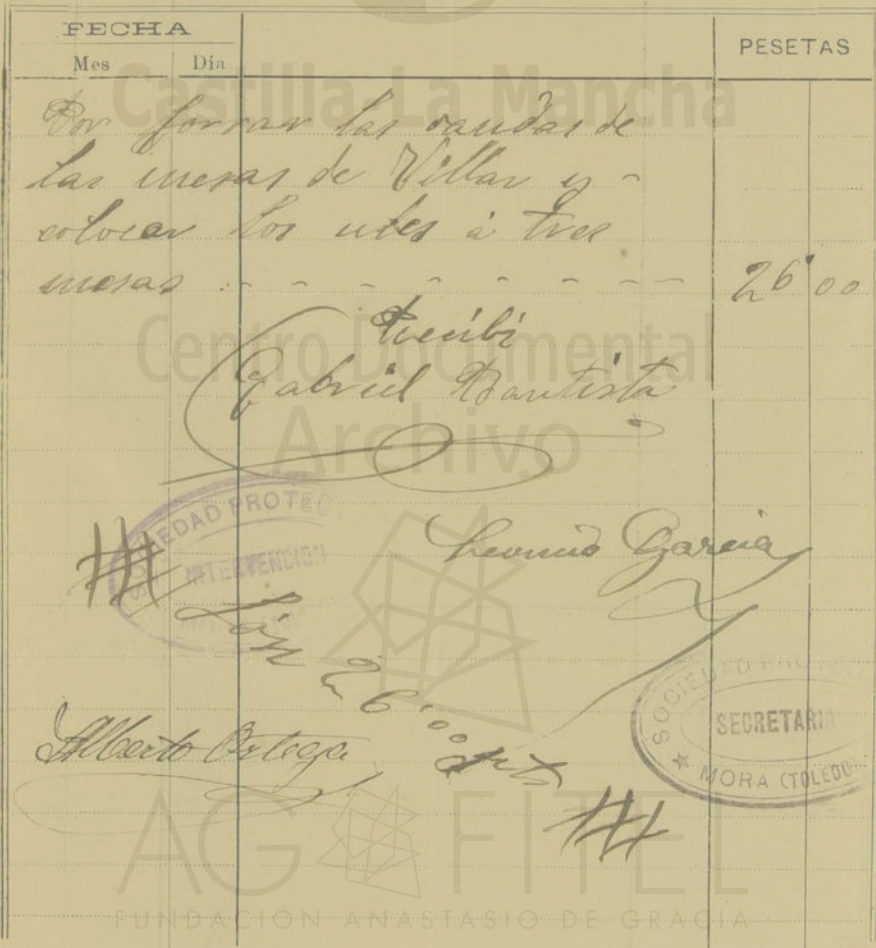 FECHA
Mes Día PESETAS
Castilla La Mancha
Por forrar las bandas de
las mesas de Villar y
colocar los ules á tres
mesas - - - - - - - 26'00
Recibí
Centro Documental
Gabriel Bautista
Archivo
SOCIEDAD PROTE
INTERVENCION
García
Són 26'00 pts
Alberto Ortega
SOCIEDAD PRO
SECRETARIA
MORA (TOLEDO
AG FITEL
FUNDACIÓN ANASTASIO DE GRACIA